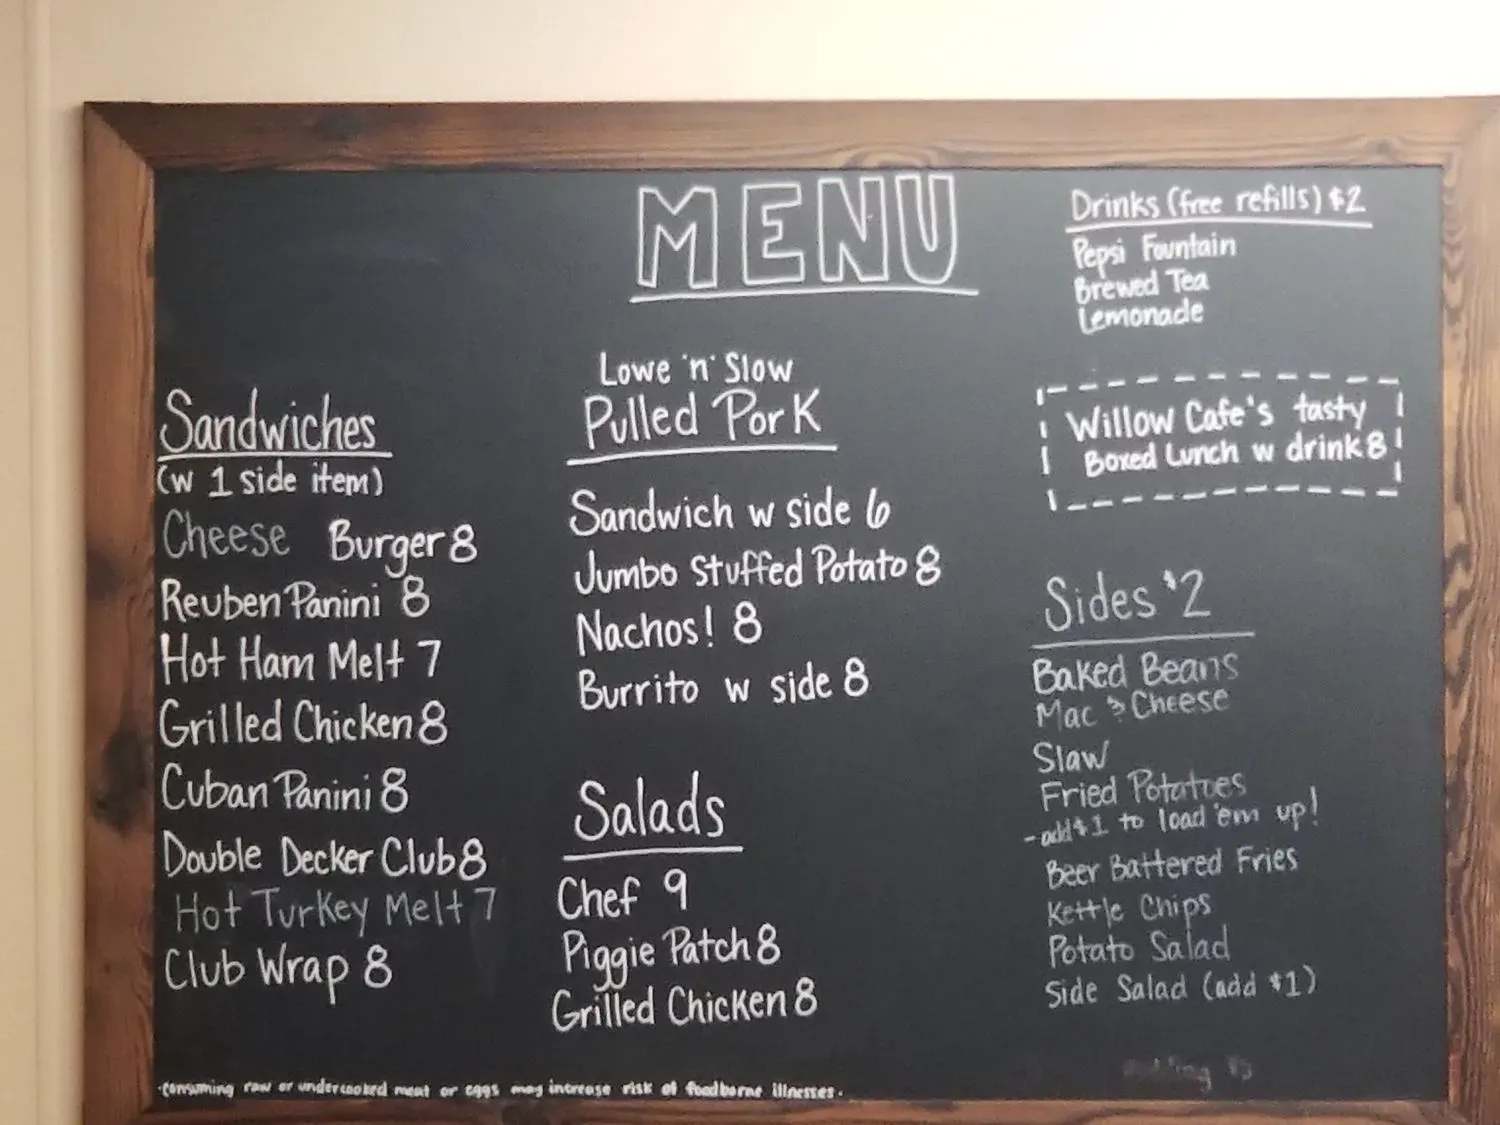 MENU
Sandwiches
(w 1 side item)
Cheese Burger 8
Reuben Panini 8
Hot Ham Melt 7
Grilled Chicken 8
Cuban Panini 8
Double Decker Club 8
Hot Turkey Melt 7
Club Wrap 8
Lowe 'n' Slow
Pulled Pork
Sandwich w side 6
Jumbo Stuffed Potato 8
Nachos! 8
Burrito w side 8
Salads
Chef 9
Piggie Patch 8
Grilled Chicken 8
Drinks (free refills) $2
Pepsi Fountain
Brewed Tea
Lemonade
Willow Cafe's tasty
Boxed Lunch w drink 8
Sides $2
Baked Beans
Mac & Cheese
Slaw
Fried Potatoes
-add $1 to load 'em up!
Beer Battered Fries
Kettle Chips
Potato Salad
Side Salad (add $1)
·consuming raw or undercooked meat or eggs may increase risk of foodborne illnesses.